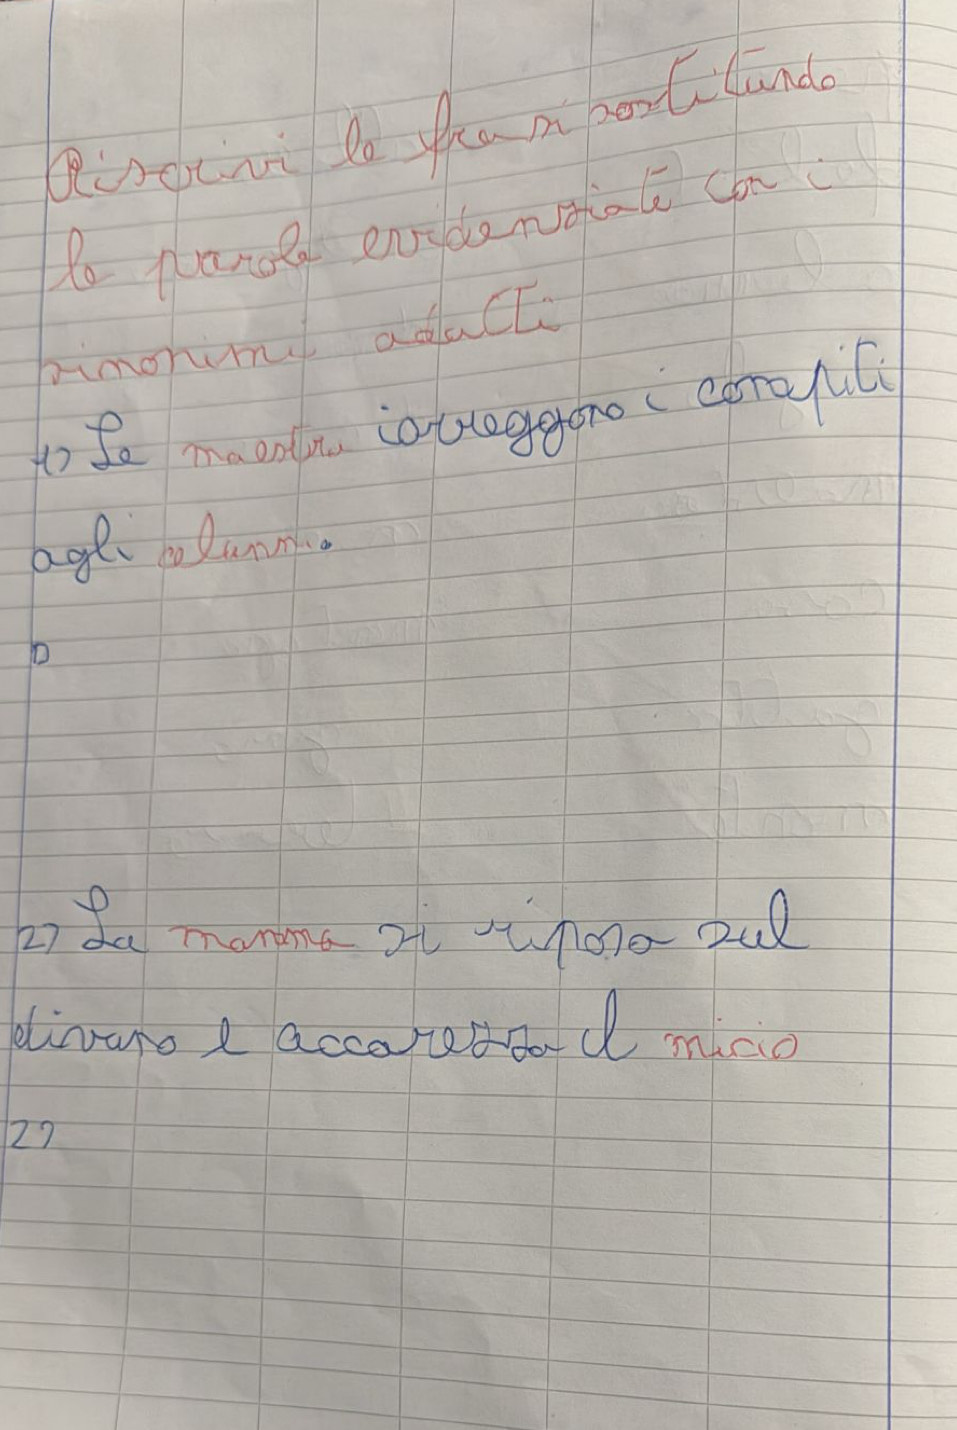 Riscrivi le frasi sostitundo
le parole evidenziate con i
sinonimi adatti
1) Le maestre correggono i compiti
agli alunni.
D
2) La mamma si riposa sul
divano e accarezza il micio
2)